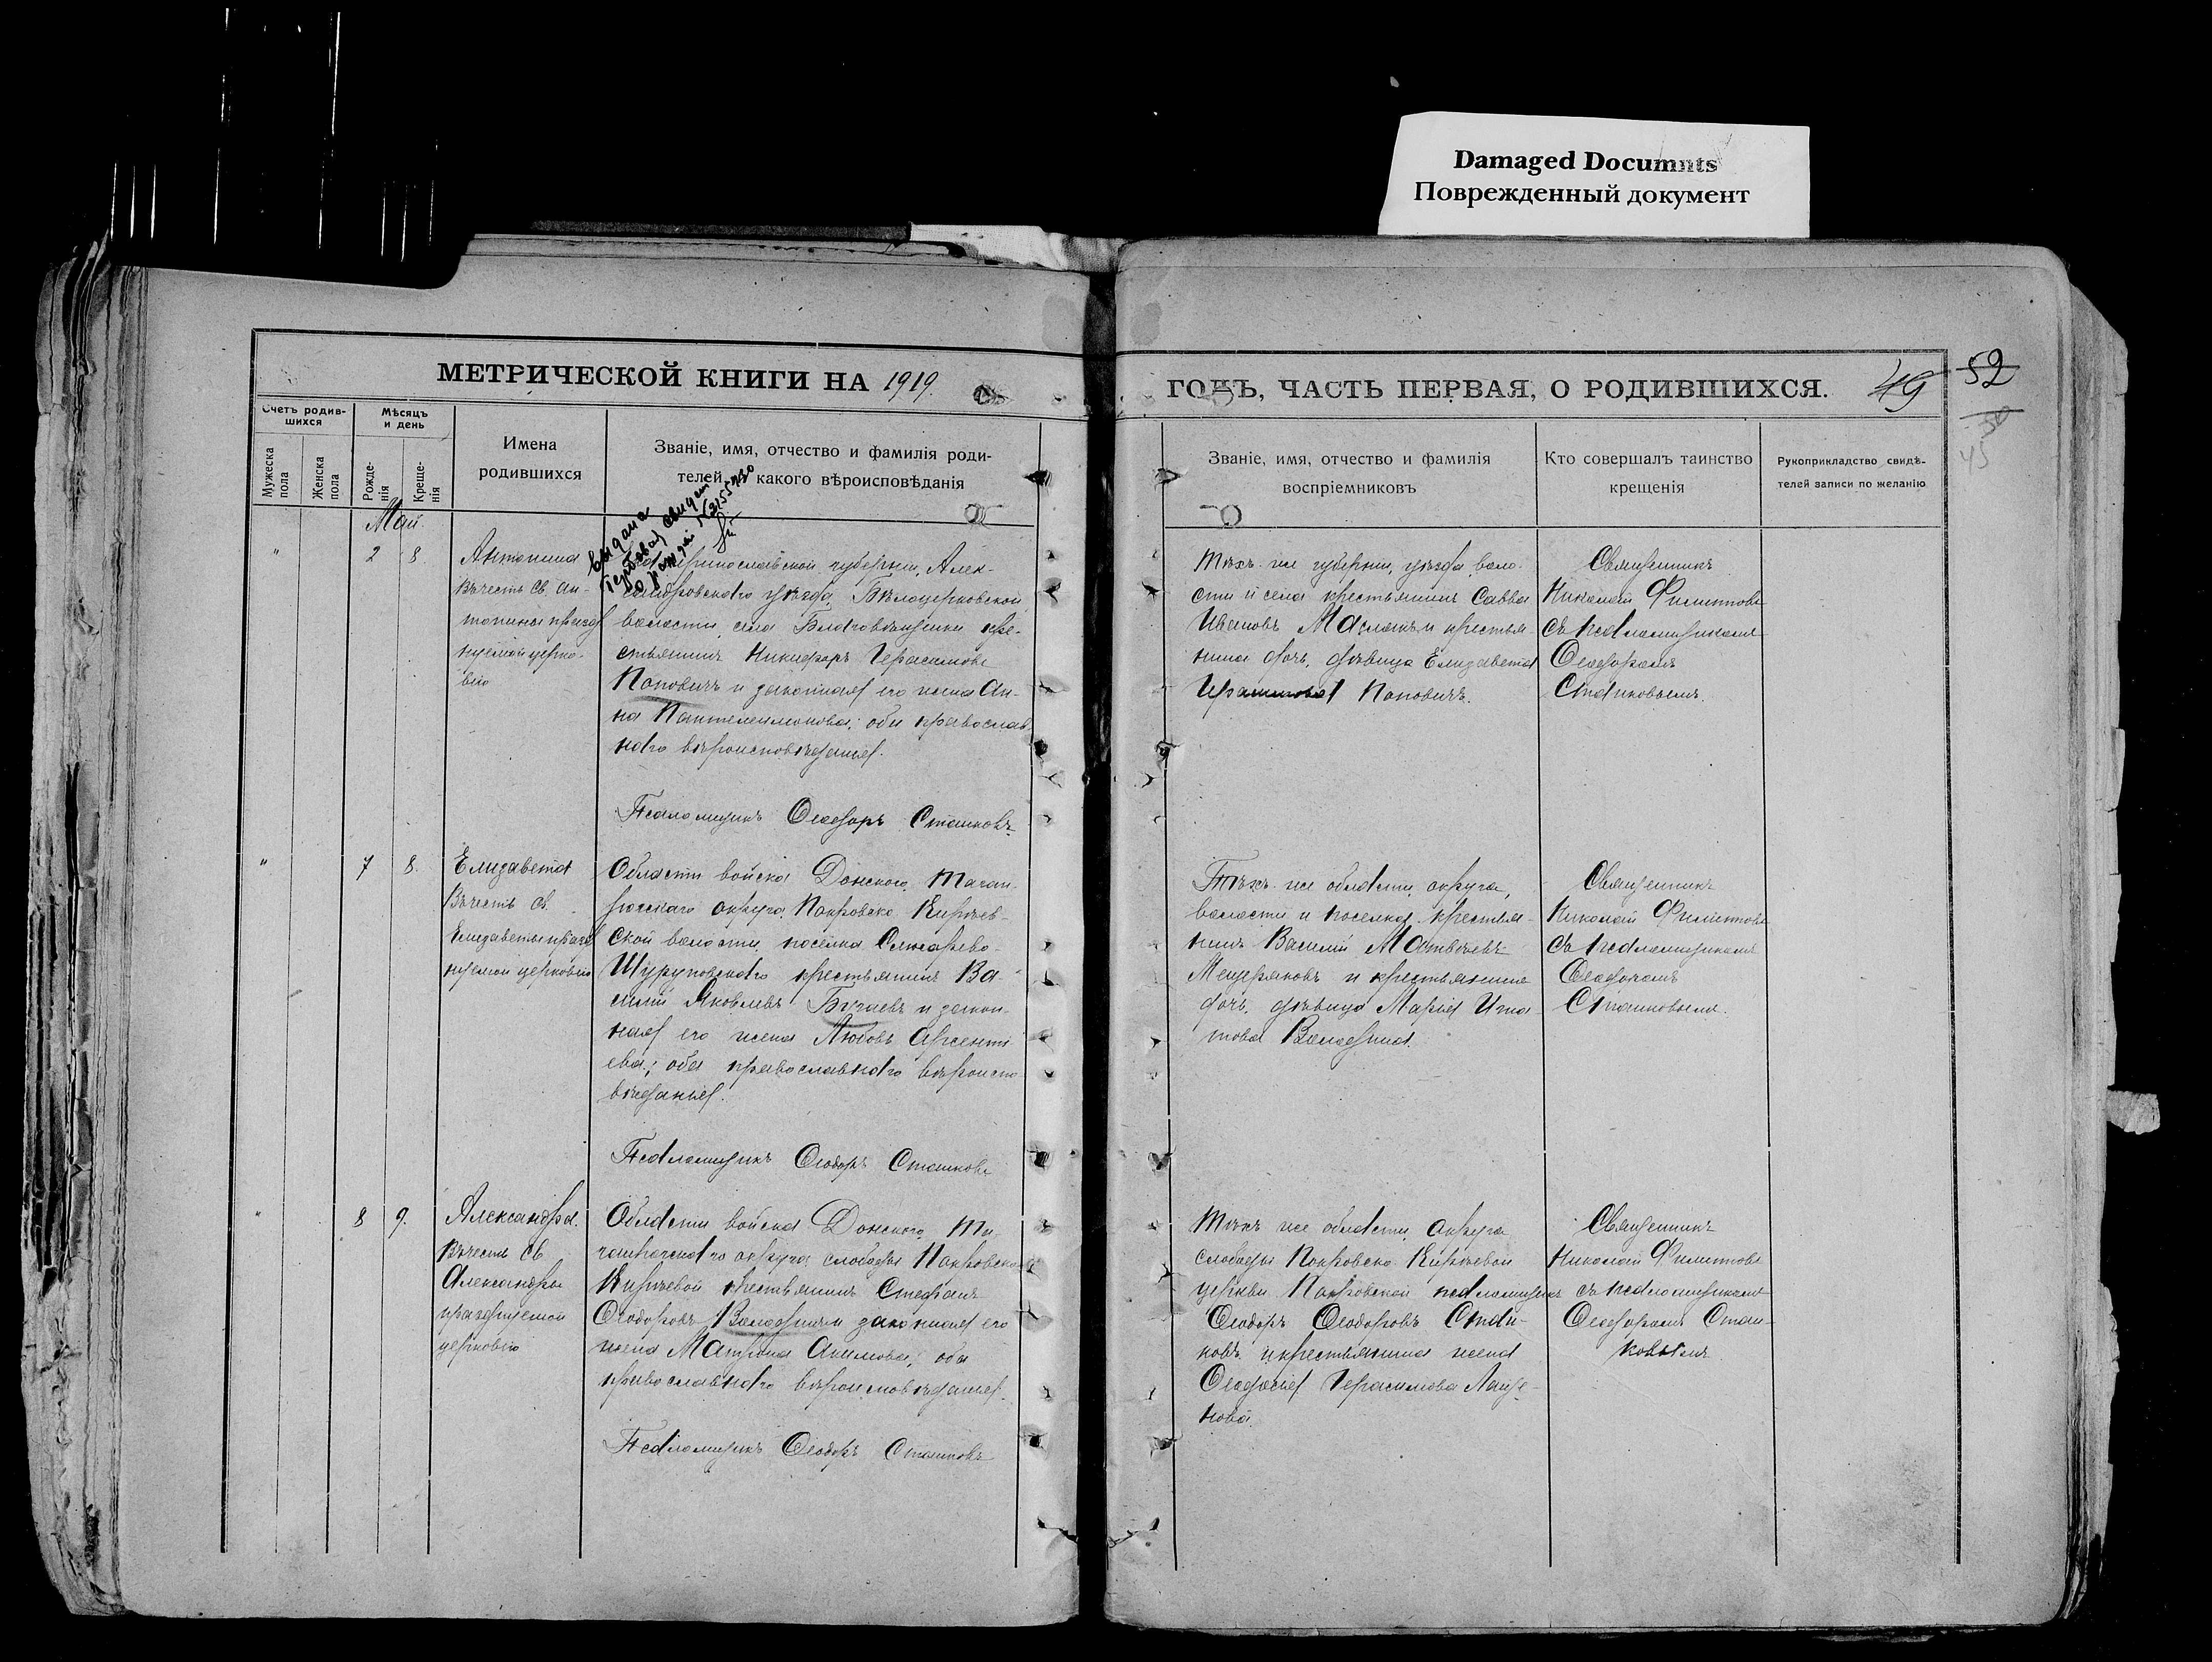 Damaged Documnts
Поврежденный документ
МЕТРИЧЕСКОЙ КНИГИ НА 1919.
ГОДЪ, ЧАСТЬ ПЕРВАЯ, О РОДИВШИХСЯ.
49
52
45
Счетъ родив-
шихся
Мужеска
пола
Женска
пола
Мѣсяцъ
и день
Рожде-
нія
Креще-
нія
Имена
родившихся
Званіе, имя, отчество и фамилія роди-
телей, и какого вѣроисповѣданія
Званіе, имя, отчество и фамилія
воспріемниковъ
Кто совершалъ таинство
крещенія
Рукоприкладство свидѣ-
телей записи по желанію
Май.
" 2 8
Антонина
въ честь св. Ан-
тонины празд
нуемой церко-
вію
выдана
губерніи, Алек-
сандровскаго уѣзда, Бѣлоцерковской
волости, села Благовѣщенки кре-
стьянинъ Никифоръ Герасимовъ
Поповичъ и законная его жена Ан-
на Пантелеимонова; оба православ-
наго вѣроисповѣданія.
Псаломщикъ Ѳеодоръ Сташковъ
Тѣхъ-же губерніи, уѣзда, воло-
сти и села крестьянинъ Савва
Ивановъ Маслакъ и крестья-
нина дочь, дѣвица Елизавета
Поповичъ.
Священникъ
Николай Филипповъ
съ псаломщикомъ
Ѳеодоромъ
Сташковымъ.
" 7 8.
Елизавета
Въ честь св.
Елизаветы празд
нуемой церковію
Области войска Донского, Таган-
рогскаго округа Покровско-Кирѣев-
ской волости, поселка
крестьянинъ Ва-
силій Яковлевъ и закон-
ная его жена Любовь Арсенті
ева; оба православнаго вѣроиспо-
вѣданія.
Псаломщикъ Ѳеодоръ Сташковъ
Тѣхъ-же области, округа,
волости и поселка крестья-
нинъ Василій Матвѣевъ
Мещеряковъ и крестьянина
дочь, дѣвица Марія Игна-
това Володина.
Священникъ
Николай Филипповъ
съ псаломщикомъ
Ѳеодоромъ
Сташковымъ.
" 8 9.
Александра.
Въ честь св.
Александры
празднуемой
церковію
Области войска Донского, Та-
ганрогскаго округа слободы Покровско-
Кирѣевой крестьянинъ Стефанъ
Ѳеодоровъ Володинъ и законная его
жена Матрона Акимова; оба
православнаго вѣроисповѣданія.
Псаломщикъ Ѳеодоръ Сташковъ
Тѣхъ же области, округа
слободы Покровско-Кирѣевой
церкви Покровской псаломщикъ
Ѳеодоръ Ѳеодоровъ Сташ-
ковъ и крестьянина жена
Ѳеодосія Герасимова Лаще-
нова.
Священникъ
Николай Филипповъ
съ псаломщикомъ
Ѳеодоромъ Сташ-
ковымъ